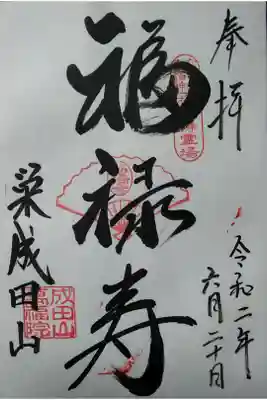 奉拝
霊場
福禄寿
令和二年
六月二十日
栄成田山
成田山
萬福院